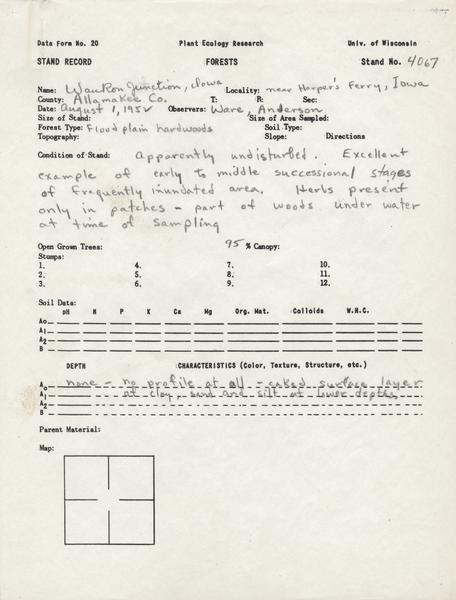 Data Form No. 20 Plant Ecology Research Univ. of Wisconsin
STAND RECORD FORESTS Stand No. 4067
Name: Waukon Junction, Iowa Locality: near Harper's Ferry, Iowa
County: Allamakee Co. T: R: Sec:
Date: August 1, 1952 Observers: Ware, Anderson
Size of Stand: Size of Area Sampled:
Forest Type: Flood plain hardwoods Soil Type:
Topography: Slope: Directions
Condition of Stand: Apparently undisturbed. Excellent
example of early to middle successional stages
of frequently inundated area. Herbs present
only in patches - part of woods under water
at time of sampling
Open Grown Trees: 95 % Canopy:
Stumps:
1. 4. 7. 10.
2. 5. 8. 11.
3. 6. 9. 12.
Soil Data:
pH N P K Ca Mg Org. Mat. Colloids W.H.C.
A₀
A₁
A₂
B
DEPTH CHARACTERISTICS (Color, Texture, Structure, etc.)
A₀ none - no profile at all - caked surface layer
A₁ of clay, sand and silt at lower depths
A₂
B
Parent Material:
Map: